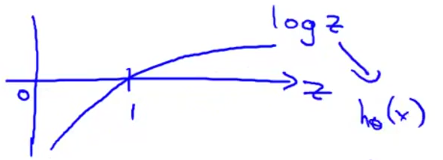 log z
0
1
z
h₀(x)